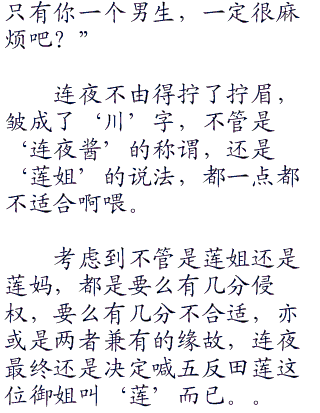 只有你一个男生，一定很麻
烦吧？”
连夜不由得拧了拧眉，
皱成了‘川’字，不管是
‘连夜酱’的称谓，还是
‘莲姐’的说法，都一点都
不适合啊喂。
考虑到不管是莲姐还是
莲妈，都是要么有几分侵
权，要么有几分不合适，亦
或是两者兼有的缘故，连夜
最终还是决定喊五反田莲这
位御姐叫‘莲’而已。。